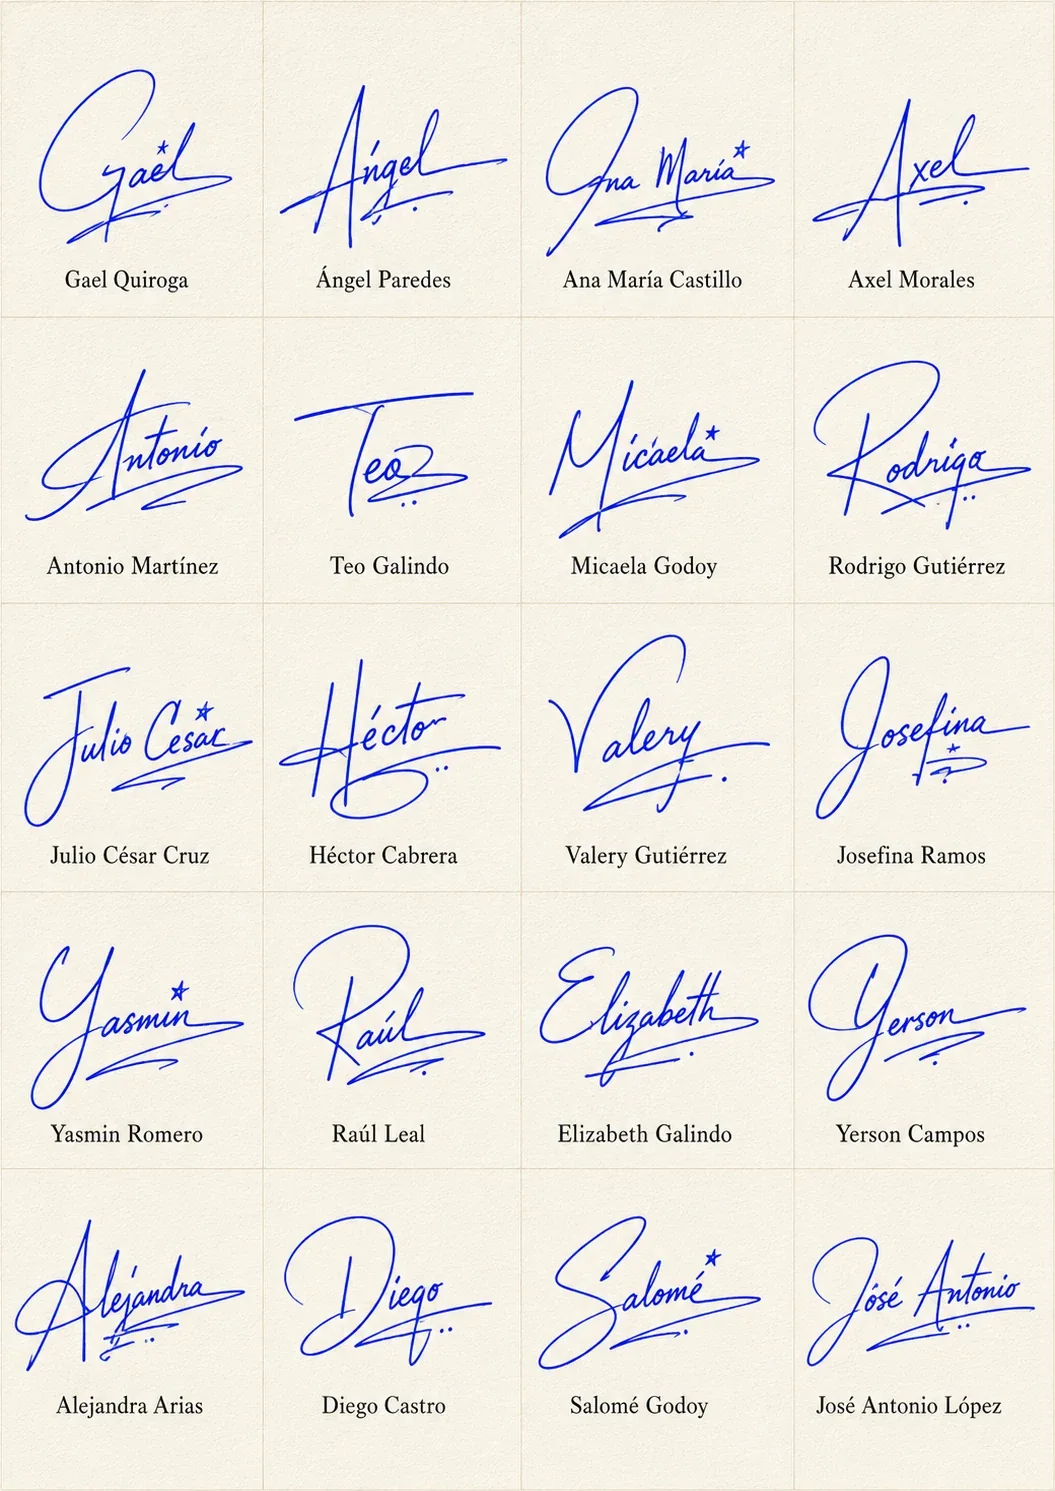 Gael
Ángel
Ana María
Axel
Gael Quiroga
Ángel Paredes
Ana María Castillo
Axel Morales
Antonio
Teo
Micaela
Rodrigo
Antonio Martínez
Teo Galindo
Micaela Godoy
Rodrigo Gutiérrez
Julio César
Héctor
Valery
Josefina
Julio César Cruz
Héctor Cabrera
Valery Gutiérrez
Josefina Ramos
Yasmin
Raúl
Elizabeth
Yerson
Yasmin Romero
Raúl Leal
Elizabeth Galindo
Yerson Campos
Alejandra
Diego
Salomé
José Antonio
Alejandra Arias
Diego Castro
Salomé Godoy
José Antonio López